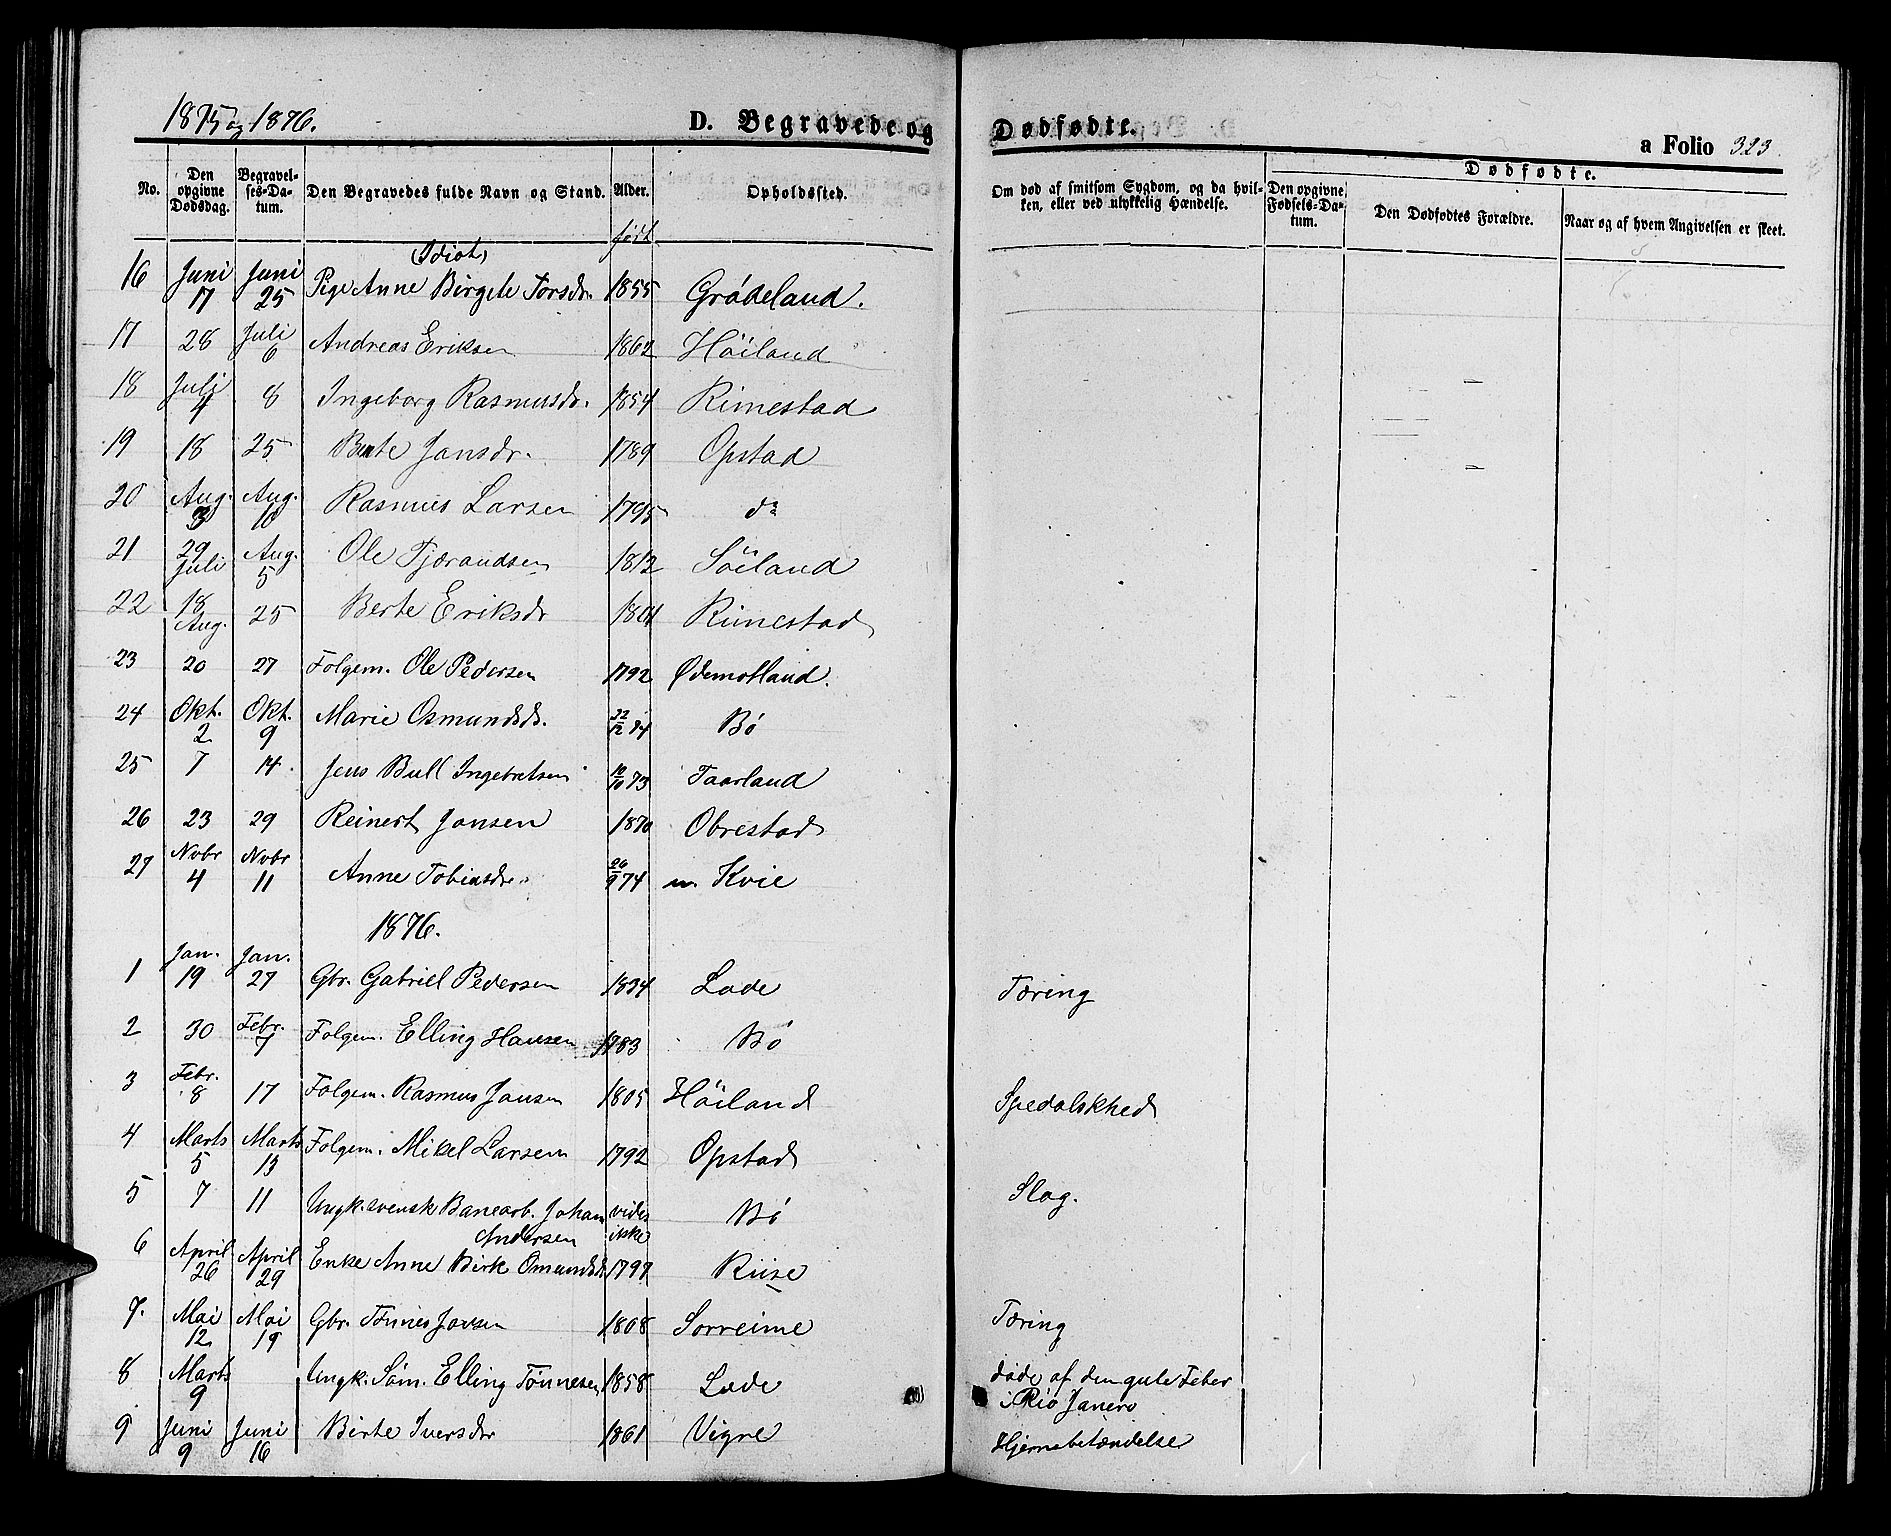 1875 og 1876.
D. Begravede og Dødfødte.
a Folio 323.
No. Den opgivne Dødsdag. Begravelses-Datum. Den Begravedes fulde Navn og Stand. Alder. Opholdssted. Om død af smitsom Sygdom, og da hvilken, eller ved ulykkelig Hændelse. Den opgivne Fødsels-Datum. Dødfødte. Den Dødfødtes Forældre. Naar og af hvem Angivelsen er skeet.
født
(Idiot)
16 Juni 17 Juni 25 Pige Anne Birgete Torsdr. 1855 Grødeland.
17 28 Juli 6 Andreas Eriksen 1862 Höiland
18 Juli 4 8 Ingeborg Rasmusdr. 1854 Rimestad
19 18 25 Berte Jansdr. 1789 Opstad
20 Aug. 3 Aug. 10 Rasmus Larsen 1795 do
21 29 Juli Aug. 5 Ole Tjærandsen 1812 Söiland
22 18 Aug. 25 Berte Eriksdr 1801 Rimestad
23 20 27 Folgem. Ole Pedersen 1792 Ødemotland.
24 Okt. 2 Okt. 9 Marie Osmundsdr. 22/12 74 Bø
25 7 14 Jens Bull Ingebretsen 10/10 73 Taarland
26 23 29 Reinert Jansen 1870 Obrestad
27 Novbr 4 Novbr 11 Anne Tobiasdr. 26/9 74 n. Kvie
1876.
1 Jan. 19 Jan. 27 Gbr. Gabriel Pedersen 1834 Lode Tæring
2 30 Febr. 7 Folgem. Elling Hansen 1783 Bø
3 Febr. 8 17 Folgem. Rasmus Jansen 1805 Höiland Spedalskhed
4 Marts 5 Marts 13 Folgem. Mikel Larsen 1792 Opstad
5 7 11 Ungk. svensk Banearb. Johan Andersen vides ikke Bø Slag.
6 April 26 April 29 Enke Anne Berte Omundsdr 1797 Riise
7. Mai 12 Mai 19 Gbr. Tønnes Jansen 1808 Sorreime Tæring
8 Marts 9 Ungk. Søm. Elling Tønnesen 1858 Lode døde af den gule Feber i Rio Janero
9 Juni 9 Juni 16 Birte Iversdr 1861 Vigre Hjernebetændelse